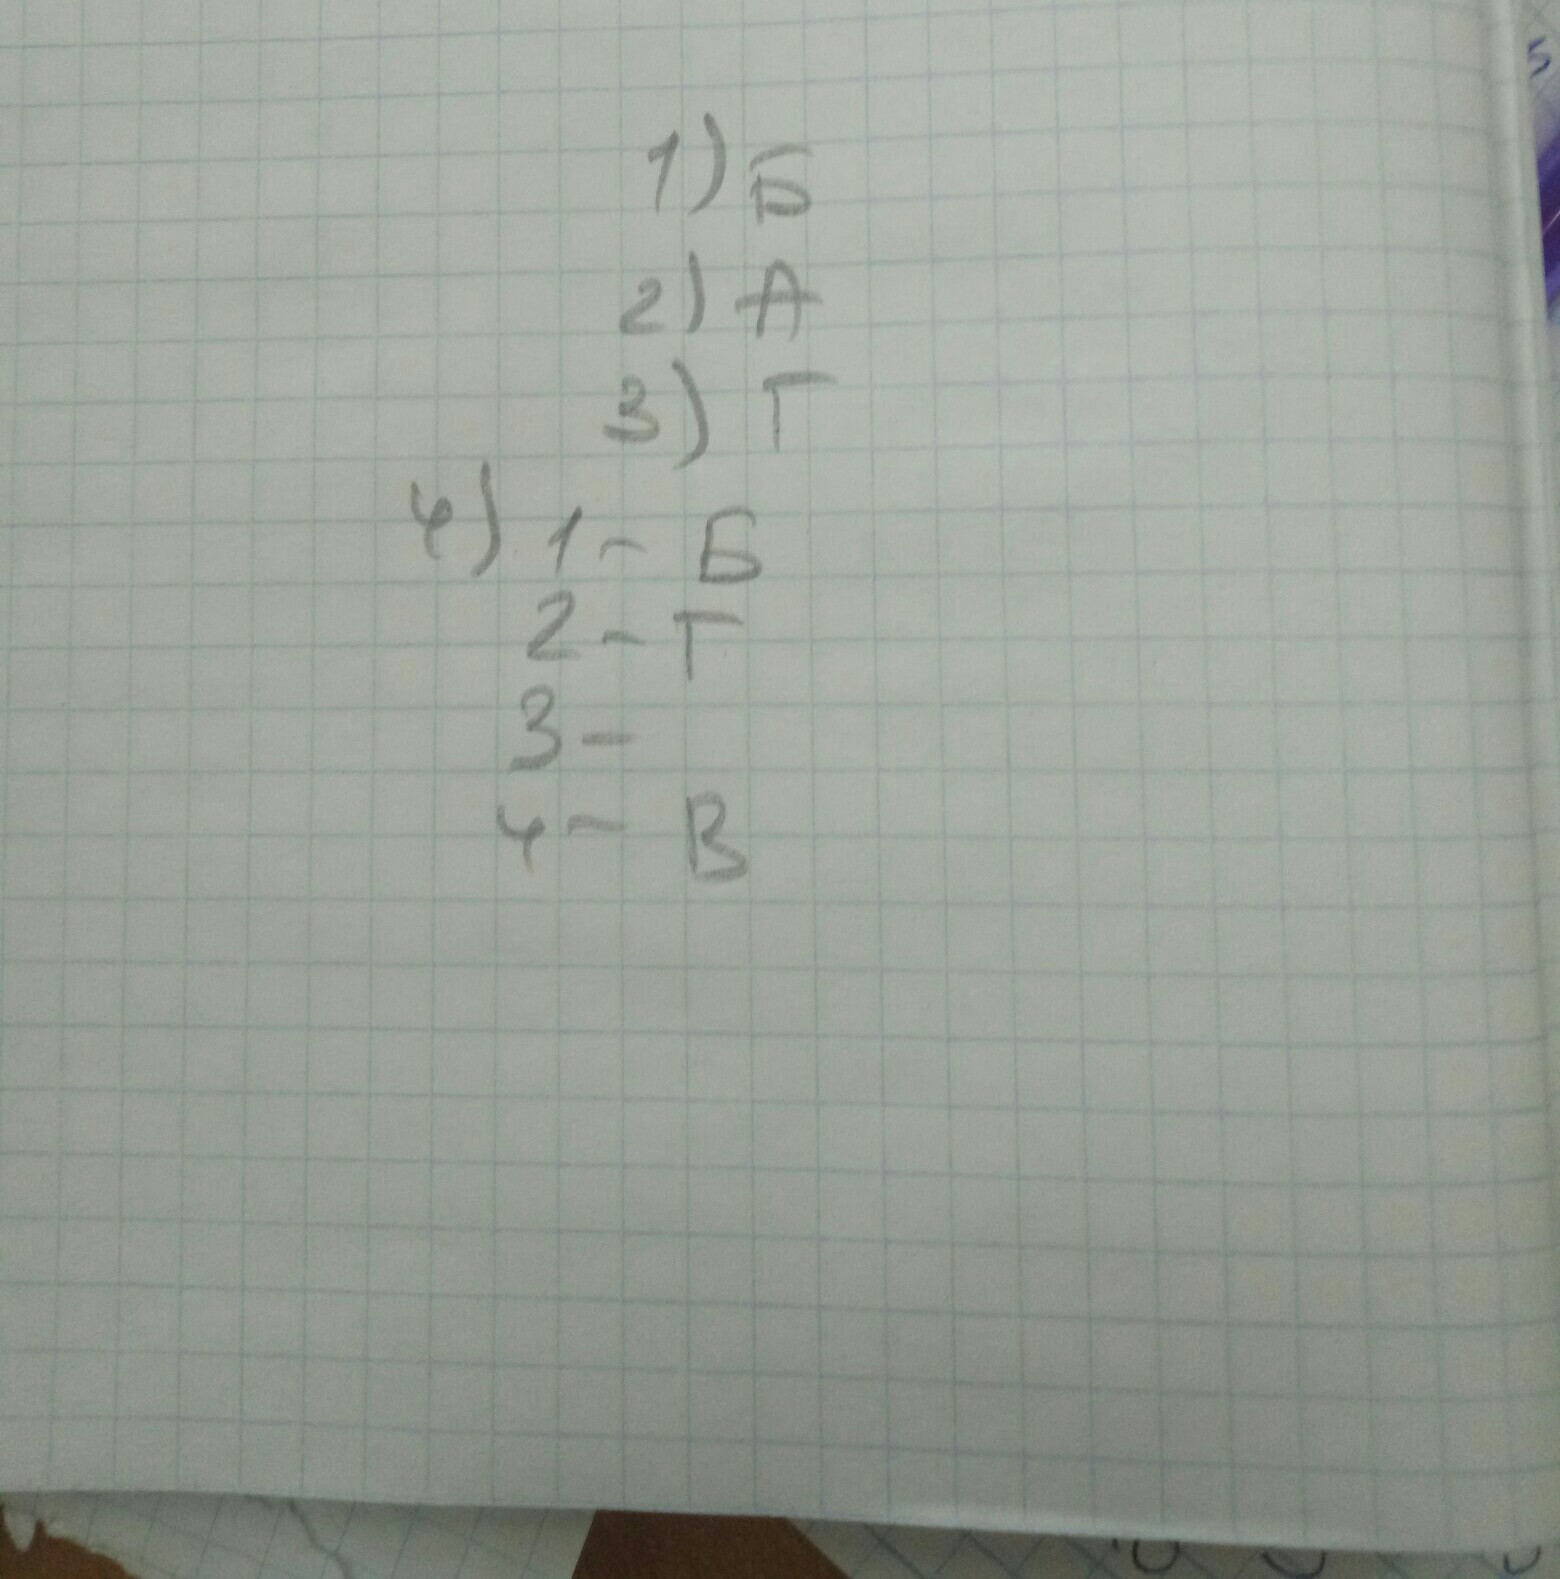 1) Б
2) А
3) Г
4) 1 - Б
2 - Г
3 -
4 - В